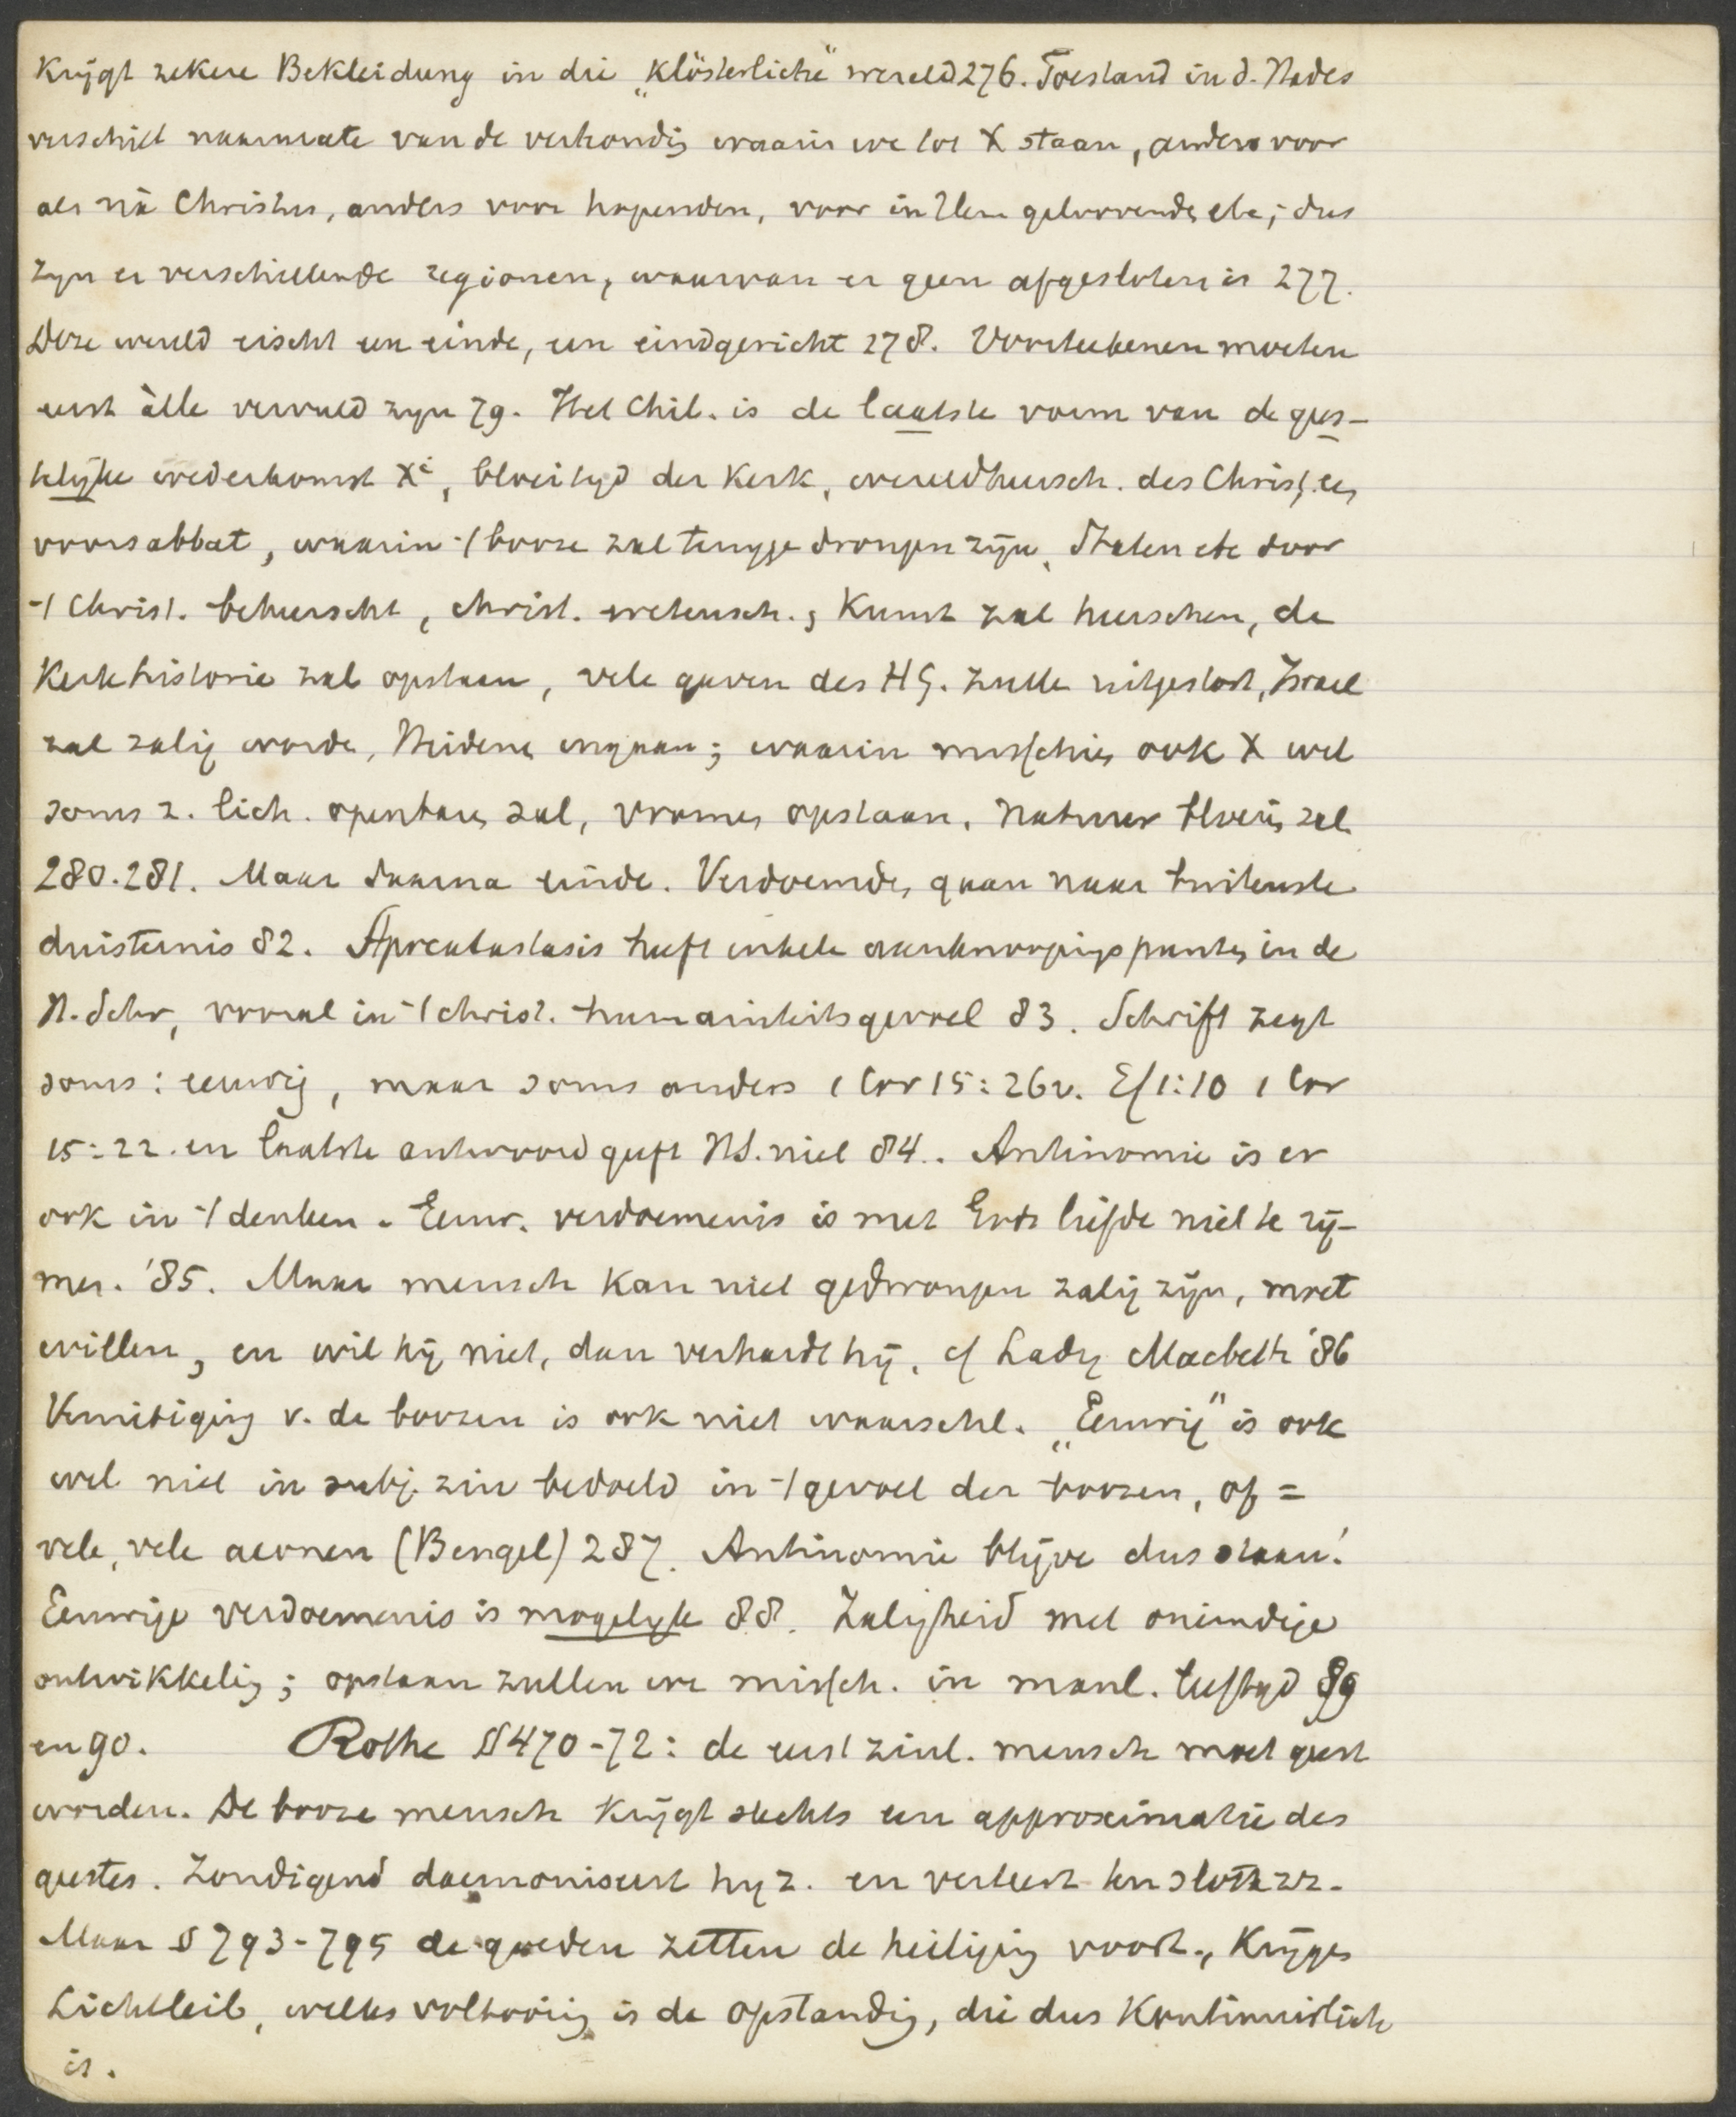 krijgt zekere Bekleidung in die „klösterliche" wereld 276. Toestand in d. Hades
verschilt naarmate van de verhoudig waarin we tot X staan, anders voor
als nà Christus, anders voor hopenden, voor in Hem geloovende, etc; dus
zijn er verschillende regionen, waarvan er geen afgesloten is 277.
Deze wereld eischt een einde, een eindgericht 278. Voorteekenen moeten
eerst àlle vervuld zijn 79. Het Chil. is de laatste vorm van de gees-
telijke wederkomst Xi, bloeityd der Kerk, wereldheersch. des Christ.
voorsabbat, waarin -/ booze zal teruggedrongen zijn, Staten etc door
-/ Christ. beheerscht, christ. wetensch., Kunst zal heerschen, de
Kerkhistorie zal opstaan, vele gaven des HG. zulle uitgestort, Israel
zal zalig worde, Heidene ingaan; waarin misschie ook X wel
soms z. lich. openbare zal, vrome, opstaan, natuur bloeie zal
280.281. Maar daarna einde. Verdoemde, gaan naar buitenste
duisternis 82. Apocatastasis heeft enkele aanknoopingspunte, in de
H. Schr, vooral in -/ christ. humaniteitsgevoel 83. Schrift zegt
soms: eeuwig, maar soms anders 1 Cor 15:26v. Ef 1:10 1 Cor
15:22. en laatste antwoord geeft HS. niet 84.. Antinomie is er
ook in -/ denken. Eeuw. verdoemenis is met Gods liefde niet te rij-
men. '85. Maar mensch kan niet gedwongen zalig zijn, moet
willen, en wil hij niet, dan verhardt hij, cf Lady Macbeth '86
Vernietiging v. de boozen is ook niet waarschl. „Eeuwig" is ook
wel niet in subj. zin bedoeld in -/ gevoel der boozen, of =
vele, vele aeonen (Bengel) 287. Antinomie blijve dus staan!
Eeuwige verdoemenis is mogelyk 88. Zaligheid met oneindige
ontwikkelig; opstaan zullen we missch. in manl. leeftyd 89
en 90. Rothe §§ 470-72: de eerst zinl. mensch moet geest
worden. De booze mensch krijgt slechts een approximatie des
geestes. Zondigend daemoniseert hy z. en verteert ten slotte zz.
Maar § 793-795 de goeden zetten de heiligig voort, krijge
Lichtleib, welks voltooiig is de opstandig, die dus Kontinuirlich
is.